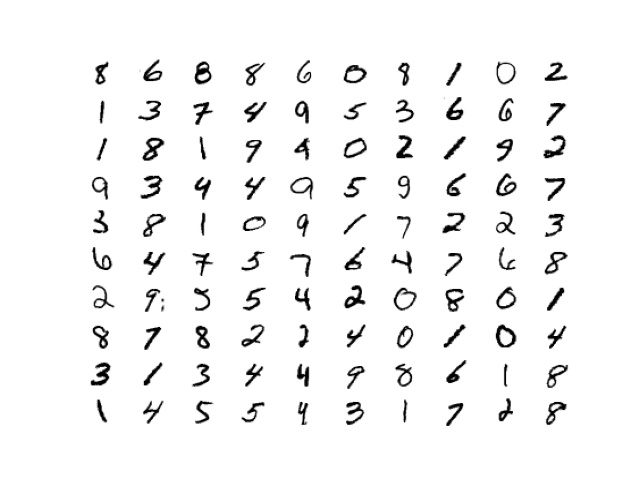 8 6 8 8 6 0 8 1 0 2
1 3 7 4 9 5 3 6 6 7
1 8 1 9 4 0 2 1 9 2
9 3 4 4 9 5 9 6 6 7
3 8 1 0 9 1 7 2 2 3
6 4 7 5 7 6 4 7 6 8
2 9; 5 5 4 2 0 8 0 1
8 7 8 2 2 4 0 1 0 4
3 1 3 4 4 9 8 6 1 8
1 4 5 5 4 3 1 7 2 8